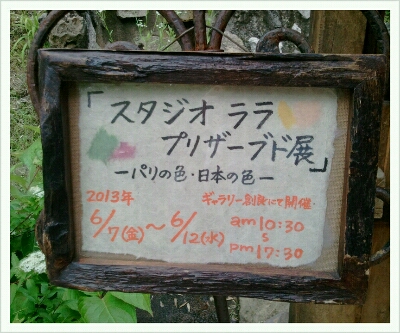 「スタジオ ララ
プリザーブド展」
ーパリの色・日本の色ー
2013年
ギャラリー創耕にて開催
6/7(金)～6/12(水)
am10:30
s
pm17:30